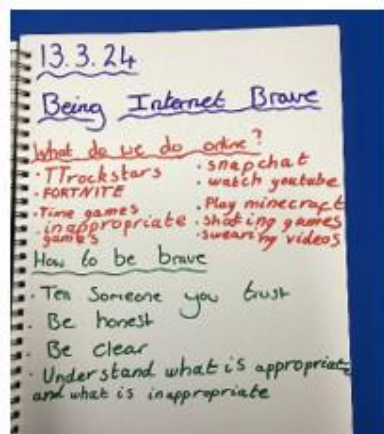 13.3.24
Being Internet Brave
What do we do online?
· TTrockstars
· FORTNITE
· Time games
· inappropriate games
· snapchat
· watch youtube
· Play minecraft
· shooting games
· swearing videos
How to be brave
· Tell Someone you trust
· Be honest
· Be clear
· Understand what is appropriate
and what is inappropriate